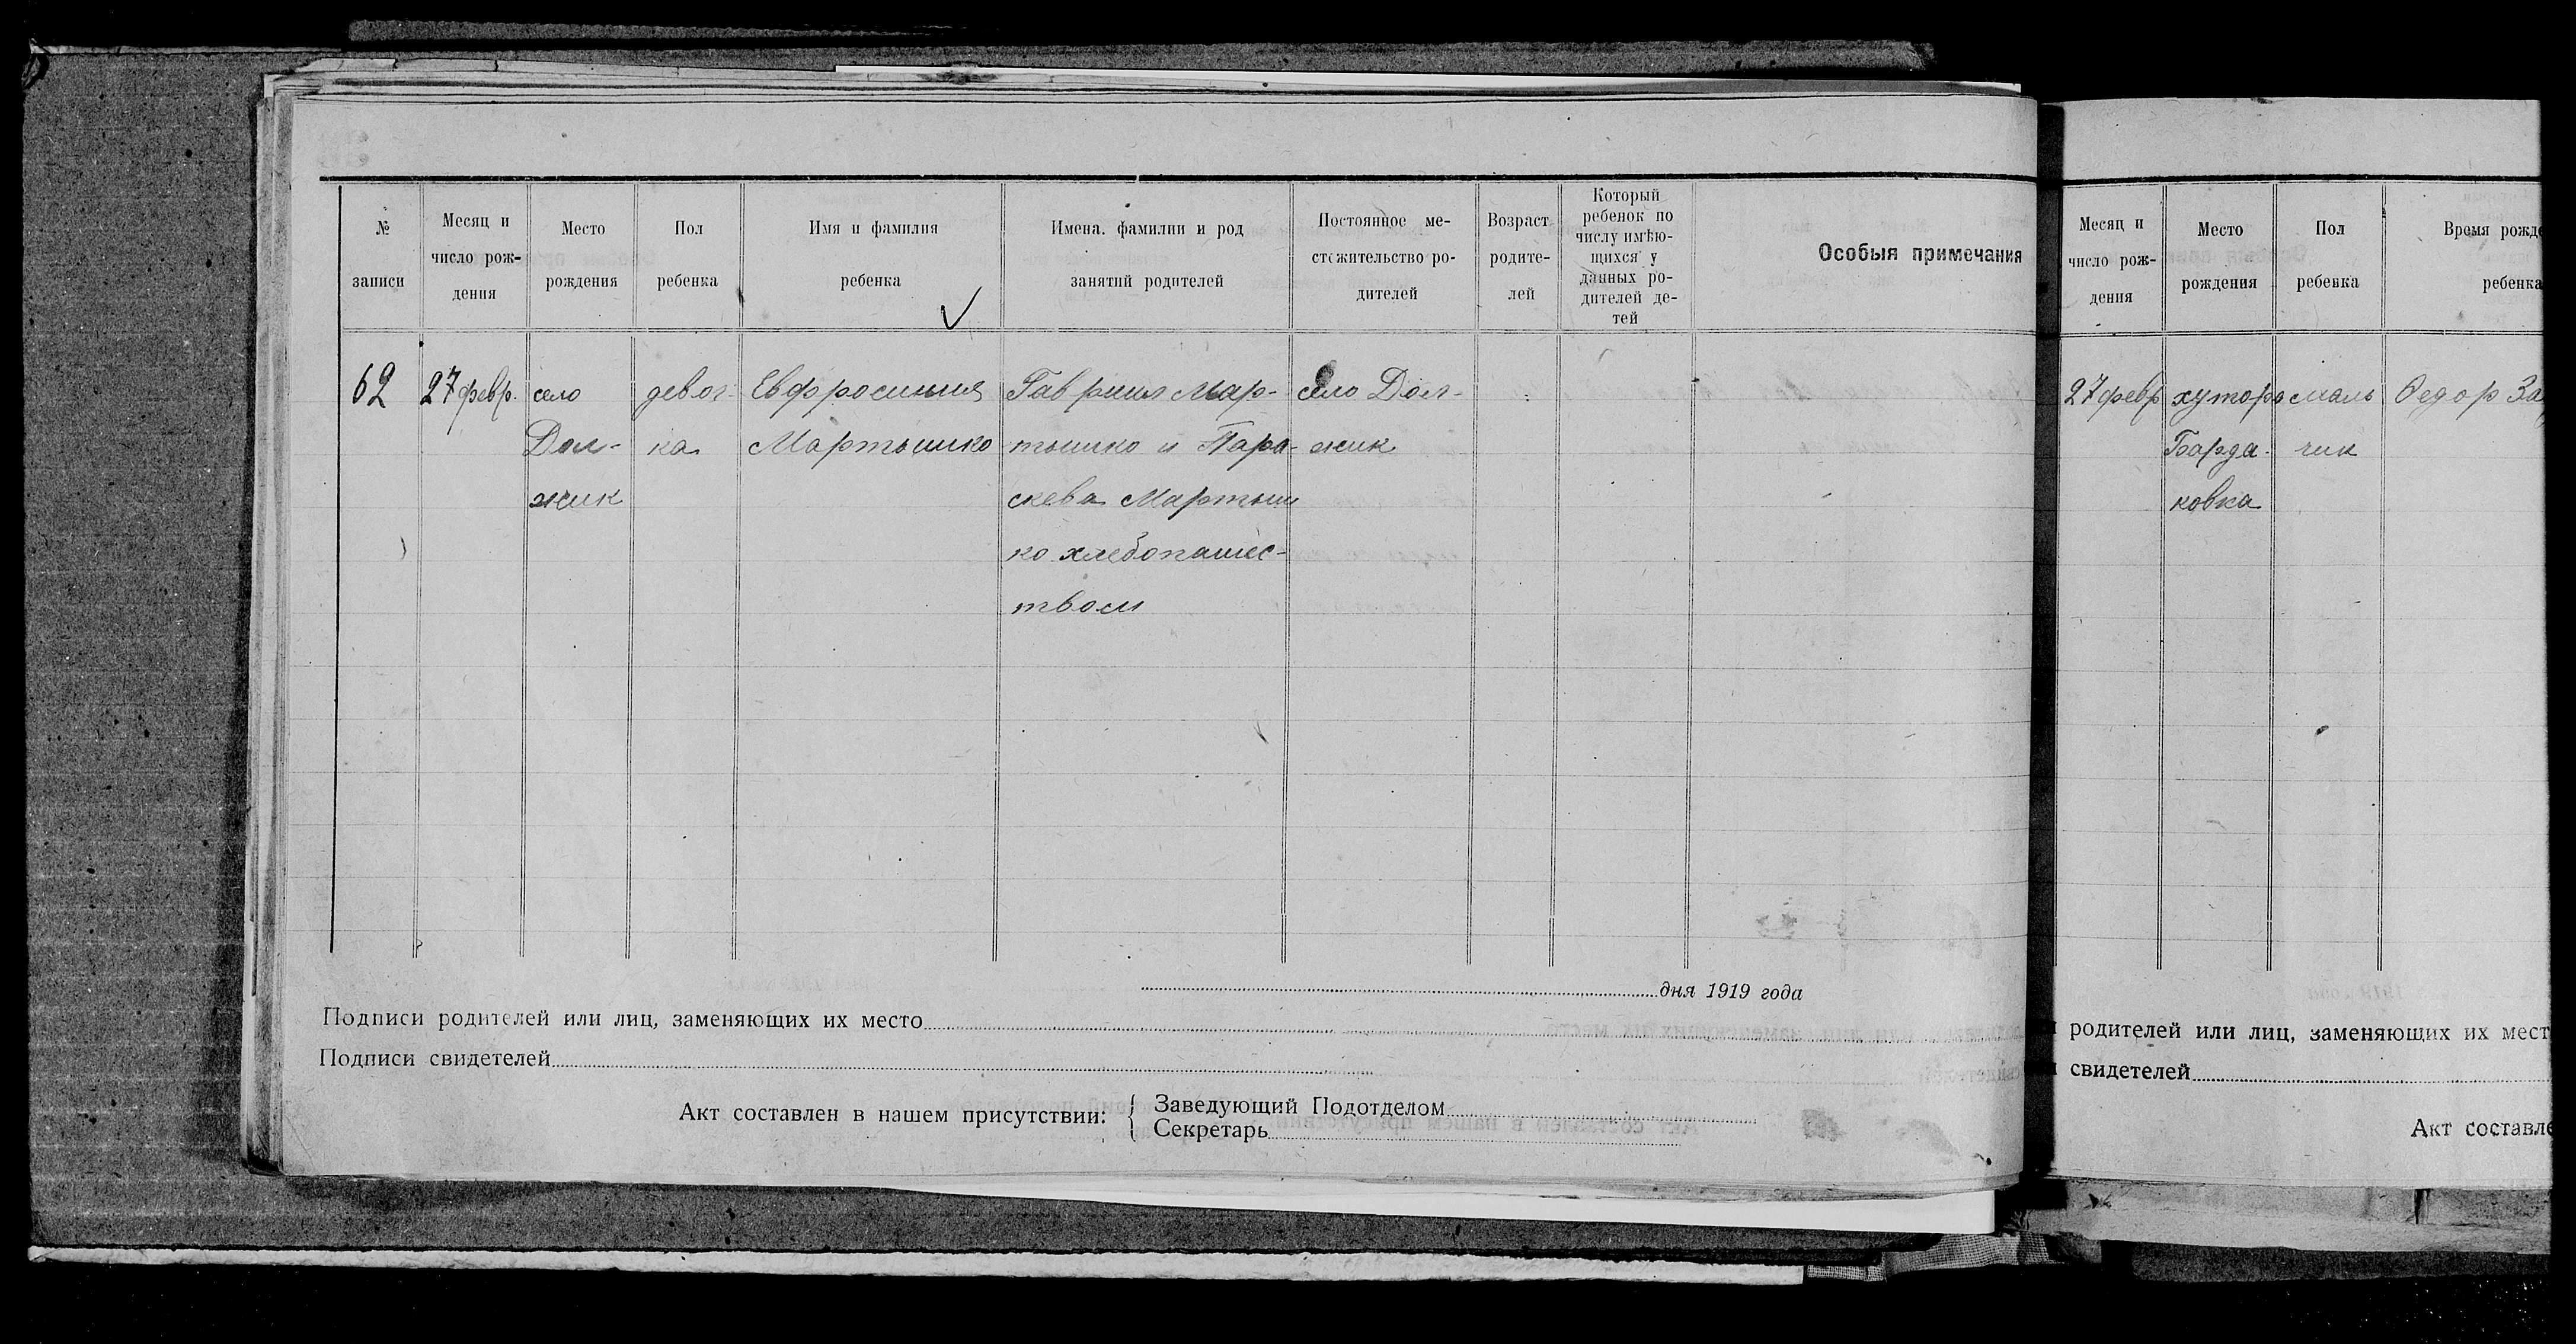 № записи
Месяц и число рож-дения
Место рождения
Пол ребенка
Имя и фамилия ребенка
Имена. фамилии и род занятий родителей
Постоянное ме-стожительство ро-дителей
Возраст родите-лей
Который ребенок по числу имѣю-щихся у данных ро-дителей де-тей
Особыя примечания
62
27 февр.
село
Дол-
жик
девоч-
ка
Евфросиния
Мартышко
Гавриил Мар-
тышко и Пара-
скева Мартыш
ко хлебопашес-
твом
село Дол-
жик
дня 1919 года
Подписи родителей или лиц, заменяющих их место
Подписи свидетелей
Акт составлен в нашем присутствии:
Заведующий Подотделом
Секретарь
Месяц и число рож-дения
Место рождения
Пол ребенка
Время рожде
ребенка
27 февр
хуторъ
Барда-
ковка
маль
чик
Федор За
родителей или лиц, заменяющих их мест
свидетелей
Акт составле